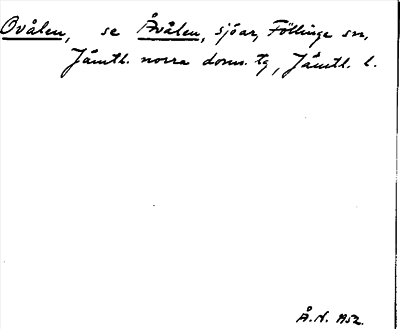 Ovålen, se Åvålen, sjöar, Föllinge sn,
Jämtl. norra doms. tg, Jämtl. l.
Å.N. 1952.